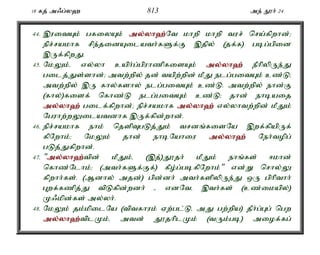 18 கத் அஃப்லஹ 813 அந் நூர் 24
44. இரவையும் பகலையும் அல்லாஹ்வே மாறி மாறி வரச் செய்கிறான்;
நிச்சயமாக சிந்தனையுடையவர்களுக்கு இதில் (தக்க) படிப்பினை
இருக்கிறது.
45. மேலும், எல்லா உயிர்ப்பிராணிகளையும் அல்லாஹ் நீரிலிருந்து
படைத்துள்ளான்; அவற்றில் தன் வயிற்றின் மீது நடப்பவையும் உண்டு;
அவற்றில் இரு கால்களால் நடப்பவையும் உண்டு; அவற்றில் நான்கு
(கால்)களைக் கொண்டு நடப்பவையும் உண்டு; தான் நாடியதை
அல்லாஹ் படைக்கிறான்; நிச்சயமாக அல்லாஹ் எல்லாவற்றின் மீதும்
பேராற்றலுடையவனாக இருக்கின்றான்.
46. நிச்சயமாக நாம் தெளிவுபடுத்தும் வசனங்களையே இறக்கியிருக்
கிறோம்; மேலும் தான் நாடியோரை அல்லாஹ் நேர்வழிப்
படுத்துகிறான்.
47. "அல்லாஹ்வின் மீதும், (இத்)தூதர் மீதும் நாங்கள் ஈமான்
கொண்டோம்; (அவர்களுக்குக்) கீழ்ப்படிகிறோம்" என்று சொல்லு
கிறார்கள். (ஆனால் அதன்) பின்னர் அவர்களிலிருந்து ஒரு பிரிவார்
புறக்கணித்து விடுகின்றனர் - எனவே, இவர்கள் (உண்மையில்)
முஃமின்கள் அல்லர்.
48. மேலும் தம்மிடையே (விவகாரம் ஏற்பட்டு, அது பற்றிய) தீர்ப்புப் பெற
அல்லாஹ்விடமும், அவன் தூதரிடமும் (வரும்படி) அழைக்கப்